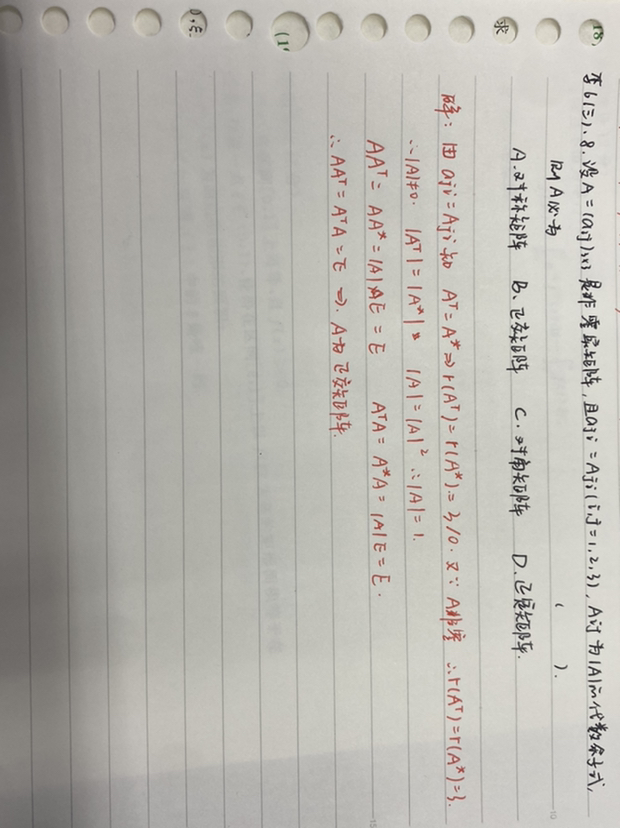 18)
李6(三).8.设A=(aij)3×3是非零实矩阵,且aji=Aji(i,j=1,2,3),Aij为|A|的代数余子式,
则A必为 ( ).
求
A.对称矩阵 B.正交矩阵 C.对角矩阵 D.正定矩阵.
解:由aji=Aji知 Aᵀ=A*⇒r(Aᵀ)=r(A*)=3/0.又∵A非零 ∴r(Aᵀ)=r(A*)=3.
∴|A|≠0. |Aᵀ|=|A*| |A|=|A|² ∴|A|=1.
AAᵀ=AA*=|A|E=E AᵀA=A*A=|A|E=E.
∴AAᵀ=AᵀA=E ⇒ A为正交矩阵.
(1'